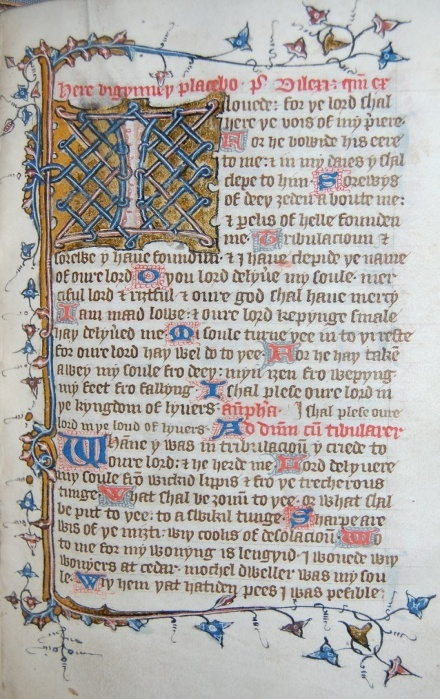 Here bigynniþ placebo ps Dilexi: qm̄ ex
I louede: for ye lord shal
here ye vois of my p̄iere
For he bowide his eere
to me: & in my daies y shal
clepe to him Sorewys
of deep zeden aboute me:
& perelis of helle founden
me Tribulacioun &
sorewe y haue founden & I haue clepide ye name
of oure lord O you lord delyūe my soule mer
ciful lord & riztful & oure god shal haue mercy
I am maad lowe: & oure lord kepynge smale
hay delyūed me Mi soule turne yee in to yi reste
for oure lord hay wel do to yee For he hay takē
awey my soule fro deey: myn izen fro wepyng
my feet fro fallyng I shal plese oure lord in
ye kyngdom of lyuers anpha I shal plese oure
lord in ye lond of lyuers Ad dnm̄ cū tribularer
Whāne y was in tribulacioū y crede to
oure lord: & he herde me Lord delyuere
my soule frō wickid lippis & fro ye trecherous
tunge What shal be zouū to yee or what shal
be put to yee: to a swikil tunge Sharpe are
wis of ye mizti: wiy coolis of desolacioū Wo
to me for my wonyng is lengyid I wonede wiy
wonyers at cedar mochel dweller was my sou
le Wiy hem yat hatiden pees I was pesible: